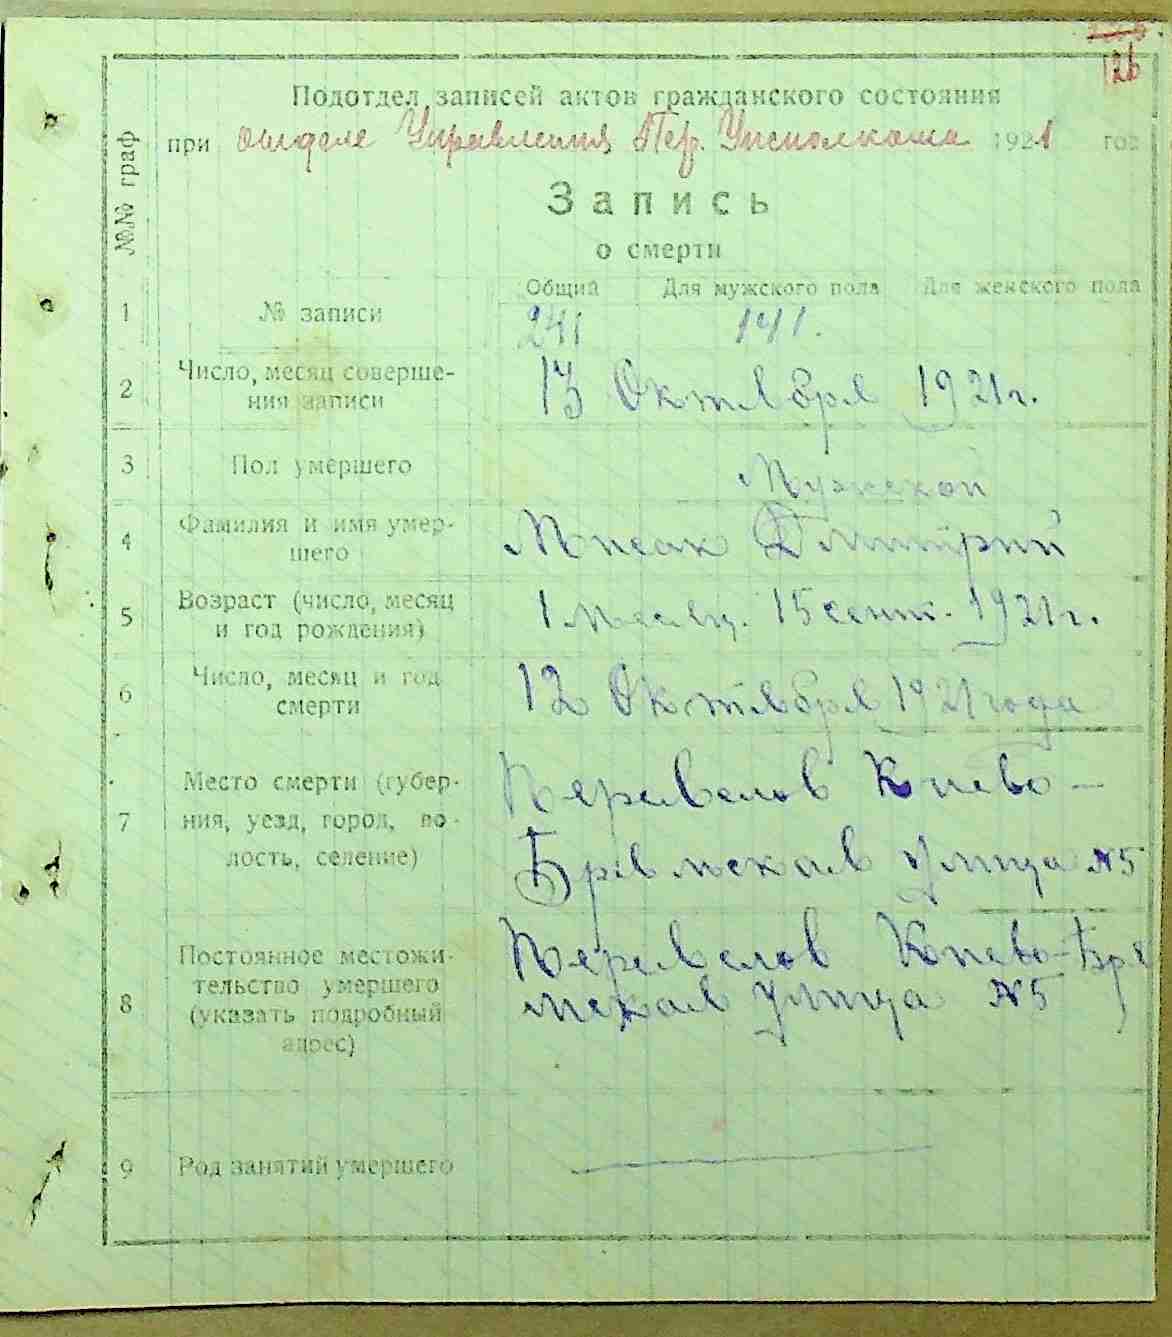 126
Подотдел записей актов гражданского состояния
при отделе Управления Пер. Уисполкома 1921 год
№№ граф
Запись
о смерти
Общий Для мужского пола Для женского пола
1 № записи 241 141.
2 Число, месяц соверше-
ния записи 13 Октября 1921 г.
3 Пол умершего Мужской
4 Фамилия и имя умер-
шего Мисак Дмитрий
5 Возраст (число, месяц
и год рождения) 1 месяц. 15 сент. 1921 г.
6 Число, месяц и год
смерти 12 Октября 1921 года
Место смерти (губер- Переяслов Киево-
7 ния, уезд, город, во-
лость, селение) улица №5
Постоянное местожи- Переяслов Киево-
тельство умершего
8 (указать подробный улица №5
адрес)
9 Род занятий умершего —